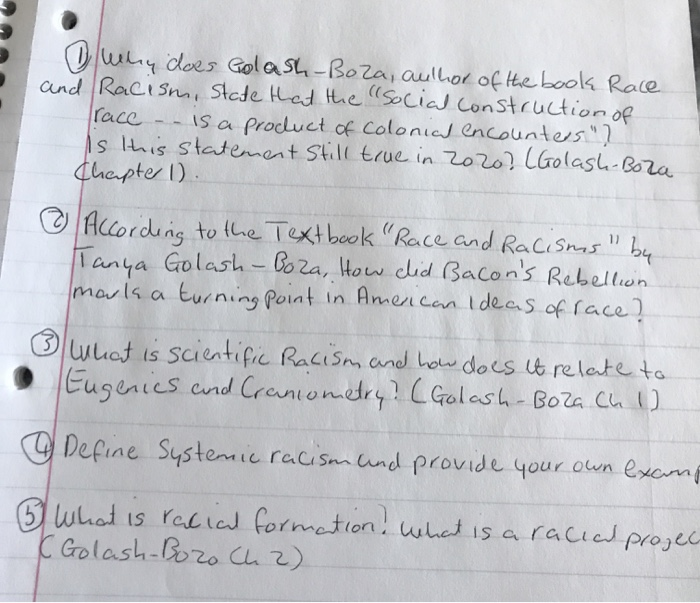 ① Why does Golash-Boza, author of the book Race
and Racism, State that the "Social Construction of
race -- is a product of colonial encounters"?
Is this statement still true in 2020? (Golash-Boza
Chapter 1).
② According to the Textbook "Race and Racisms" by
Tanya Golash-Boza, How did Bacon's Rebellion
mark a turning point in American Ideas of race?
③ What is scientific Racism and how does it relate to
Eugenics and Craniometry? (Golash-Boza Ch 1)
④ Define Systemic racism and provide your own exam
⑤ What is racial formation? What is a racial projec
(Golash-Bozo Ch 2)